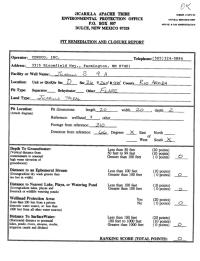 JICARILLA APACHE TRIBE
ENVIRONMENTAL PROTECTION OFFICE
P.O. BOX 507
DULCE, NEW MEXICO 87528
PIT REMEDIATION AND CLOSURE REPORT
Operator: CONOCO, INC. Telephone: (505) 324-5884
Address: 3315 Bloomfield Hwy., Farmington, NM 87401
Facility or Well Name: Jicarilla 9 A
Location: Unit or Qtr/Qtr Sec D Sec County Rio Arriba
Pit Type: Separator Dehydrator Other
Land Type:
Pit Location: Pit dimensions: length 20, width 20, depth
(Attach diagram)
Reference: wellhead X, other
Footage from reference:
Direction from reference: Degrees X East North
of
West South X
Depth To Groundwater: Less than 50 feet (20 points)
(Vertical distance from 50 feet to 99 feet (10 points)
contaminants to seasonal Greater than 100 feet (0 points) 0
high water elevation of
groundwater)
Distance to an Ephemeral Stream Less than 100 feet (10 points)
Greater than 100 feet (0 points) 0
Distance to Nearest Lake, Playa, or Watering Pond Less than 100 feet (10 points)
Greater than 100 feet (0 points) 0
Wellhead Protection Area: Yes (20 points)
(Less than 200 feet from a private No (0 points) 0
domestic water source, or; less than
1000 feet from all other water sources)
Distance To Surface Water: Less than 100 feet (20 points)
(Horizontal distance to perennial 100 feet to 1000 feet (10 points)
lakes, ponds, rivers, streams, creeks, Greater than 1000 feet (0 points) 0
irrigation canals and ditches)
RANKING SCORE (TOTAL POINTS): 0